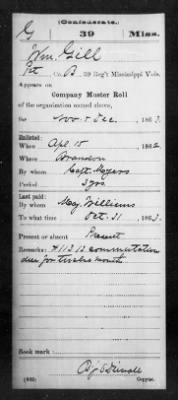 (Confederate.)
G 39 Miss.
Wm. Gill
Pvt, Co. B, 39 Reg't Mississippi Vols.
Appears on
Company Muster Roll
of the organization named above,
for Nov & Dec, 1863.
Enlisted:
When Apl 15, 1862
Where Brandon
By whom Capt. Mayers
Period 3 yrs
Last paid:
By whom Maj. Williams
To what time Oct. 31, 1863.
Present or absent Present
Remarks: $113.12 commutation
due for twelve month
Book mark:
(642)
Copyist.